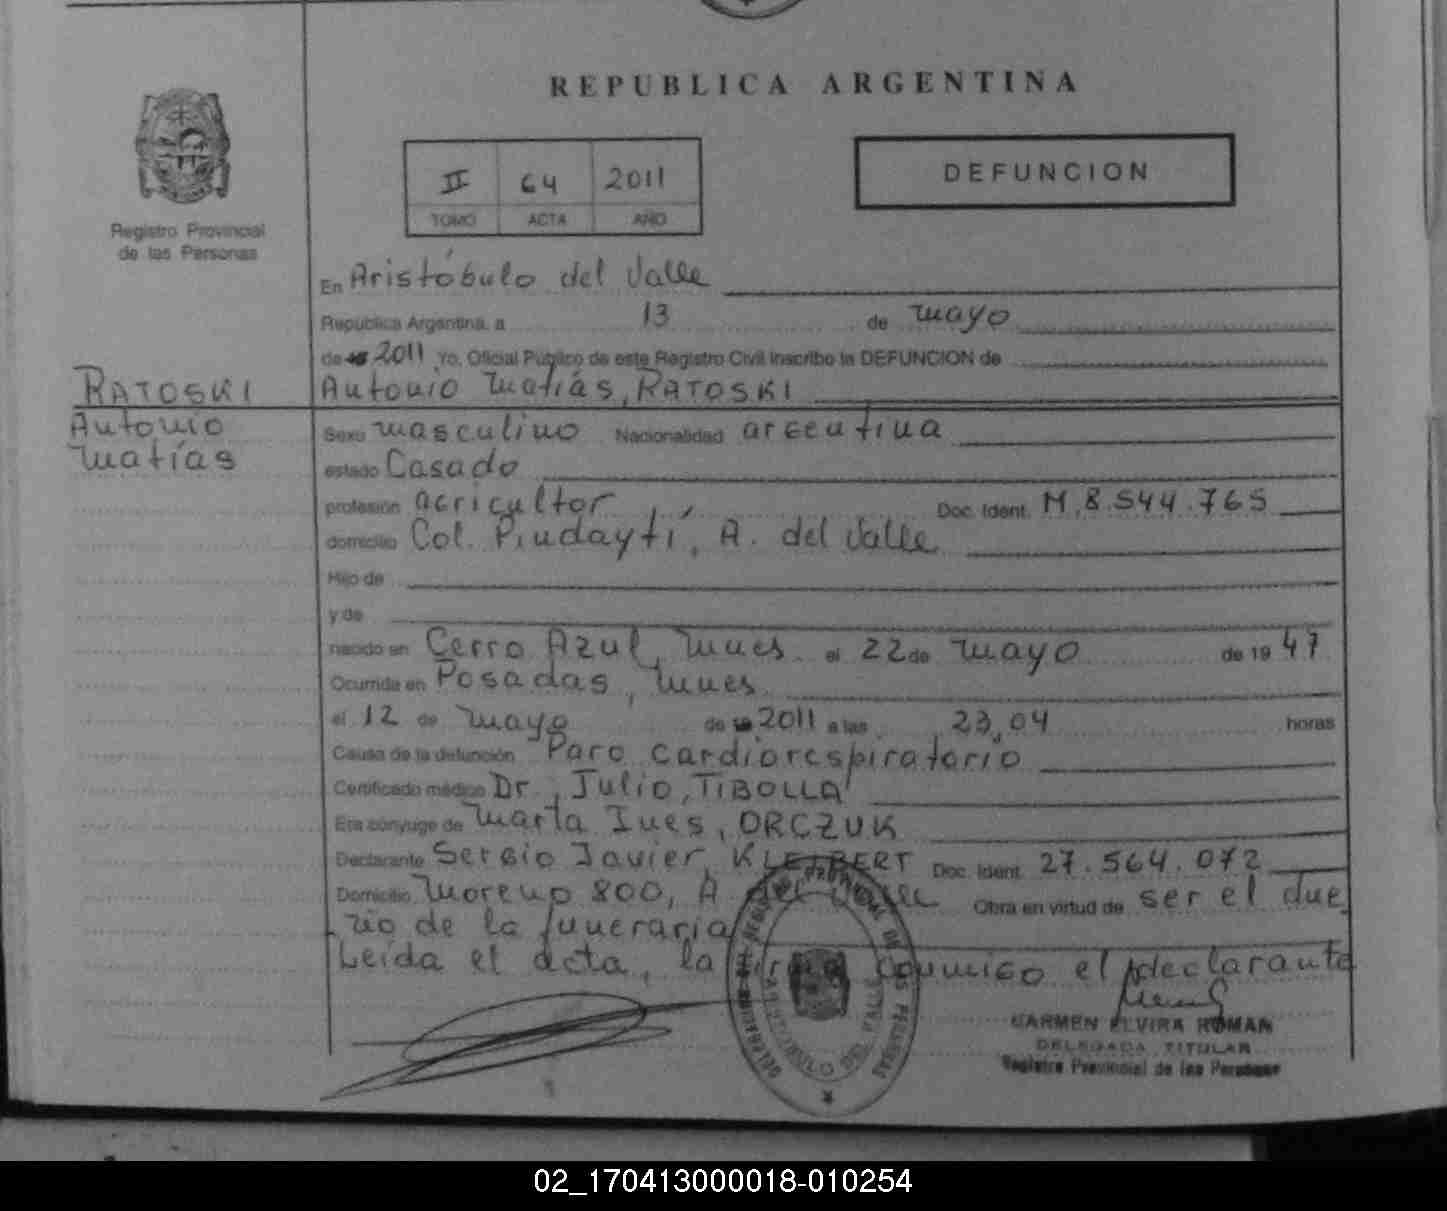 REPUBLICA ARGENTINA
II 64 2011
TOMO ACTA AÑO
DEFUNCION
Registro Provincial
de las Personas
En Aristóbulo del Valle
República Argentina, a 13 de mayo
de 2011 Yo, Oficial Público de este Registro Civil inscribo la DEFUNCION de
RATOSKI
Antonio Matías, RATOSKI
Antonio
Matías
Sexo masculino Nacionalidad argentina
estado Casado
profesión agricultor Doc. Ident. M.8.544.765
domicilio Col. Pindaytí, A. del Valle
Hijo de
y de
nacido en Cerro Azul, Mnes. el 22 de mayo de 1947
Ocurrida en Posadas, Mnes.
el 12 de mayo de 2011 a las 23,04 horas
Causa de la defunción Paro cardiorespiratorio
Certificado médico Dr. Julio, TIBOLLA
Era cónyuge de Marta Ines, ORCZUK
Declarante Sergio Javier, KLEIBERT Doc. Ident. 27.564.072
Domicilio Moreno 800, A. del Valle Obra en virtud de ser el due
ño de la funeraria
Leída el acta, la firma conmigo el declarante
REGISTRO PROVINCIAL DE LAS PERSONAS
ARISTOBULO DEL VALLE
CARMEN ELVIRA ROMAN
DELEGADA TITULAR
Registro Provincial de las Personas
02_170413000018-010254